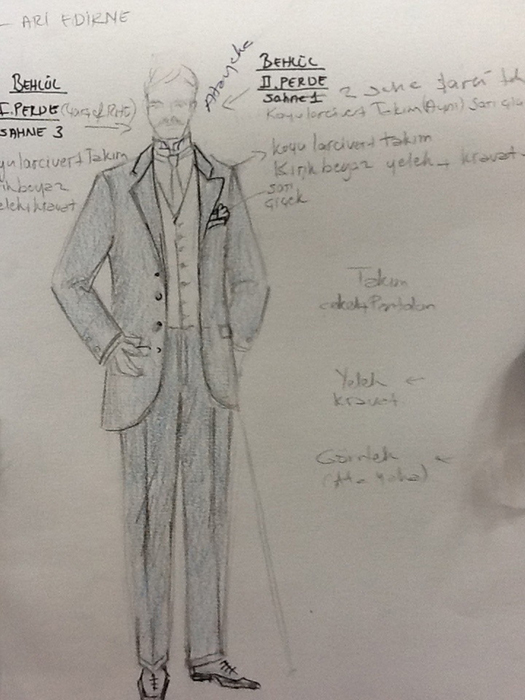 ARİ EDİRNE
BEHLÜL
I. PERDE
SAHNE 3
yu larcivert Takım
beyaz
elek+kravat
Atayaka
BEHLÜL
II. PERDE
Sahne 1
2 sene
Koyu larcivert Takım (Aynı) Sarı
koyu larcivert takım
Kırık beyaz yelek + kravat
sarı
çiçek
Takım
ceket+Pantolon
Yelek ←
kravat
Gömlek
(Ata yaka)